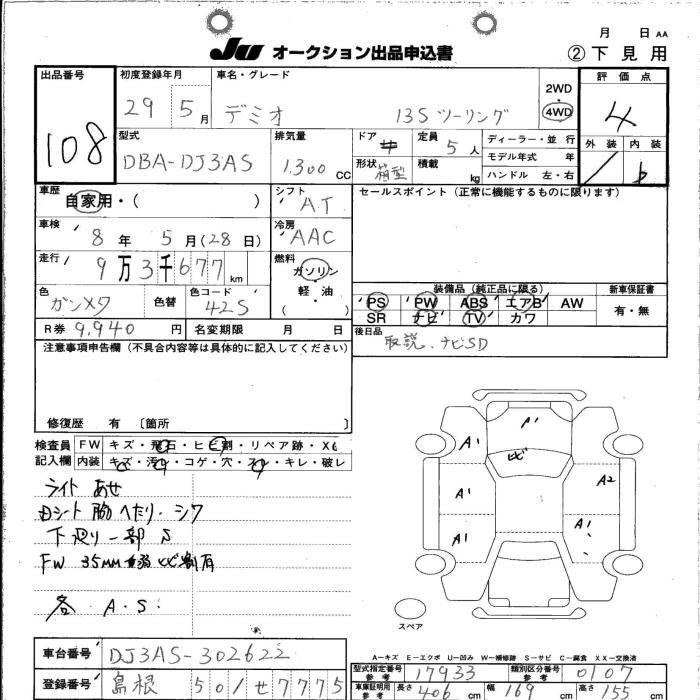 JU オークション出品申込書
月 日 AA
②下見用
出品番号
108
初度登録年月
29 5月
車名・グレード
デミオ 13S ツーリング
2WD
4WD
評価点
4
型式
DBA-DJ3AS
排気量
1.300 CC
ドア
定員
5人
形状
箱型
積載
kg
ディーラー・並行
モデル年式 年
ハンドル 左・右
外装 内装
b
車歴
自家用・( )
シフト
A.T
セールスポイント (正常に機能するものに限ります)
車検
8年 5月(28日)
冷房
AAC
走行
9万3千677km
燃料
ガソリン
軽・油
( )
色
ガンメタ
色替
色コード
42S
装備品 (純正品に限る)
PS PW ABS エアB AW
SR ナビ TV カワ
新車保証書
有・無
R券 9,940円
名変期限 月 日
後日品
取説.ナビSD
注意事項申告欄 (不具合内容等は具体的に記入してください)
修復歴 有 〔箇所 〕
検査員
記入欄
FW キズ・飛石・ヒビ割・リペア跡・X6
内装 キズ・汚・コゲ・穴・スレ・キレ・破レ
ライト あせ
Dシート 脇 へたり・シワ
下廻り 一部 S
FW 35mm 弱 ヒビ割有
各 A.S.
A1
A1
ヒビ
A1
A2
A1
A1
スペア
A－キズ E－エクボ U－凹み W－補修跡 S－サビ C－腐食 XX－交換済
車台番号
DJ3AS-302622
登録番号
島根 501せ7775
型式指定番号
参考
17933
類別区分番号
参考
0107
車庫証明用
参考
長さ 406cm 幅 169cm 高さ 155cm